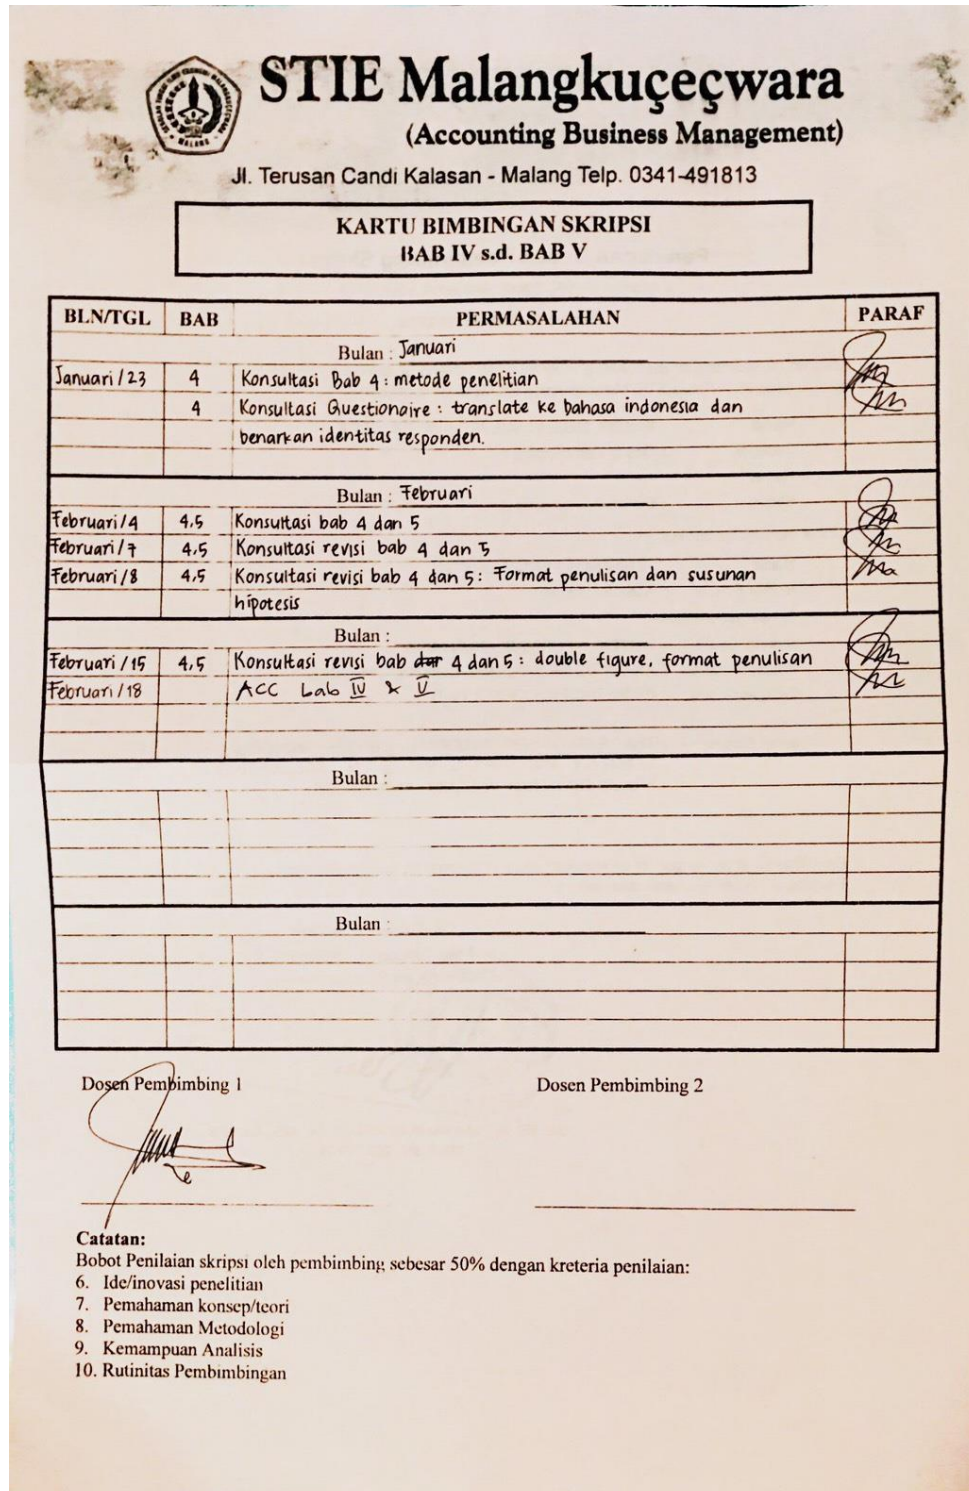 STIE Malangkuçeçwara
(Accounting Business Management)
MALANG
Jl. Terusan Candi Kalasan - Malang Telp. 0341-491813
KARTU BIMBINGAN SKRIPSI
BAB IV s.d. BAB V
BLN/TGL BAB PERMASALAHAN PARAF
Bulan : Januari
Januari / 23 4 Konsultasi Bab 4 : metode penelitian
4 Konsultasi Questionaire : translate ke bahasa indonesia dan
benarkan identitas responden.
Bulan : Februari
Februari / 4 4,5 Konsultasi bab 4 dan 5
Februari / 7 4,5 Konsultasi revisi bab 4 dan 5
Februari / 8 4,5 Konsultasi revisi bab 4 dan 5 : Format penulisan dan susunan
hipotesis
Bulan :
Februari / 15 4,5 Konsultasi revisi bab dar 4 dan 5 : double figure, format penulisan
Februari / 18 ACC Lab IV & V
Bulan :
Bulan :
Dosen Pembimbing 1 Dosen Pembimbing 2
Catatan:
Bobot Penilaian skripsi oleh pembimbing sebesar 50% dengan kreteria penilaian:
6. Ide/inovasi penelitian
7. Pemahaman konsep/teori
8. Pemahaman Metodologi
9. Kemampuan Analisis
10. Rutinitas Pembimbingan